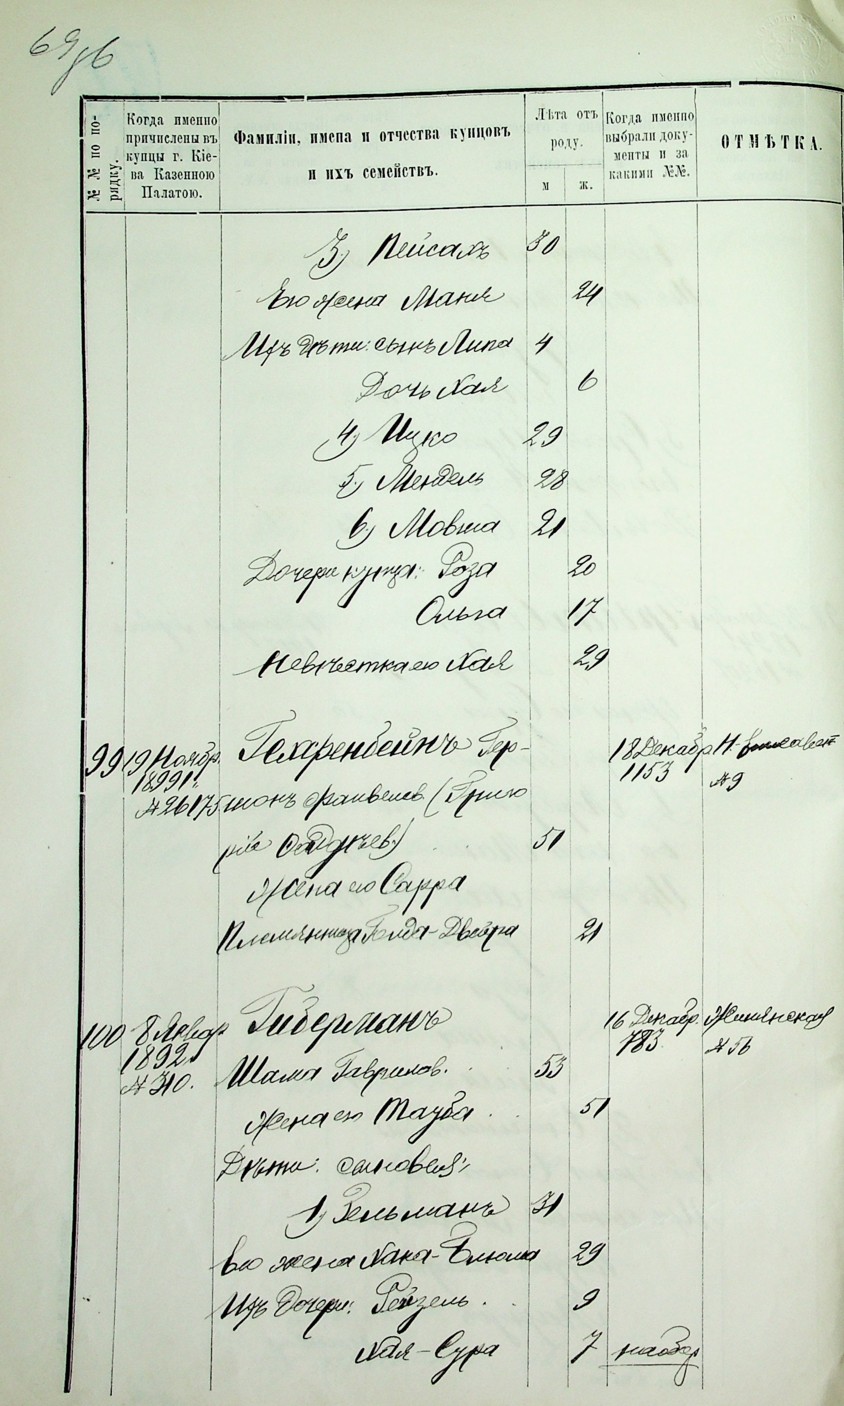 69 об
№№ по порядку.
Когда именно причислены въ купцы г. Кіева Казенною Палатою.
Фамиліи, имена и отчества купцовъ и ихъ семействъ.
Лѣта отъ роду.
м ж.
Когда именно выбрали документы и за какими №№.
ОТМѢТКА.
3) Пейсахъ 30
Его жена Маня 24
Ихъ дѣти: сынъ Липа 4
Дочь Хая 6
4) Ицко 29
5) Мендель 28
6) Мовша 21
Дочери купца: Роза 20
Ольга 17
Невѣстка его Хая 29
99 19 Ноябр. Гехренбейнъ Гер- 18 Декабр Н-
1891 г. 1153 № 9
№ 26175 шонъ Файвелев (Григо
рій ) 51
Жена его Сарра
Племянница Голда-Двойра 21
100 8 Январ Гиберманъ 16 Декабр. Жилянская
1892 783 № 56
№ 310. Шама Гаврилов. 53
Жена его Тауба 51
Дѣти: сыновья:
1) Зельманъ 31
Его жена Хана-Блюма 29
Ихъ дочери: Рейзель. 9
Хая-Сура 7 на обор